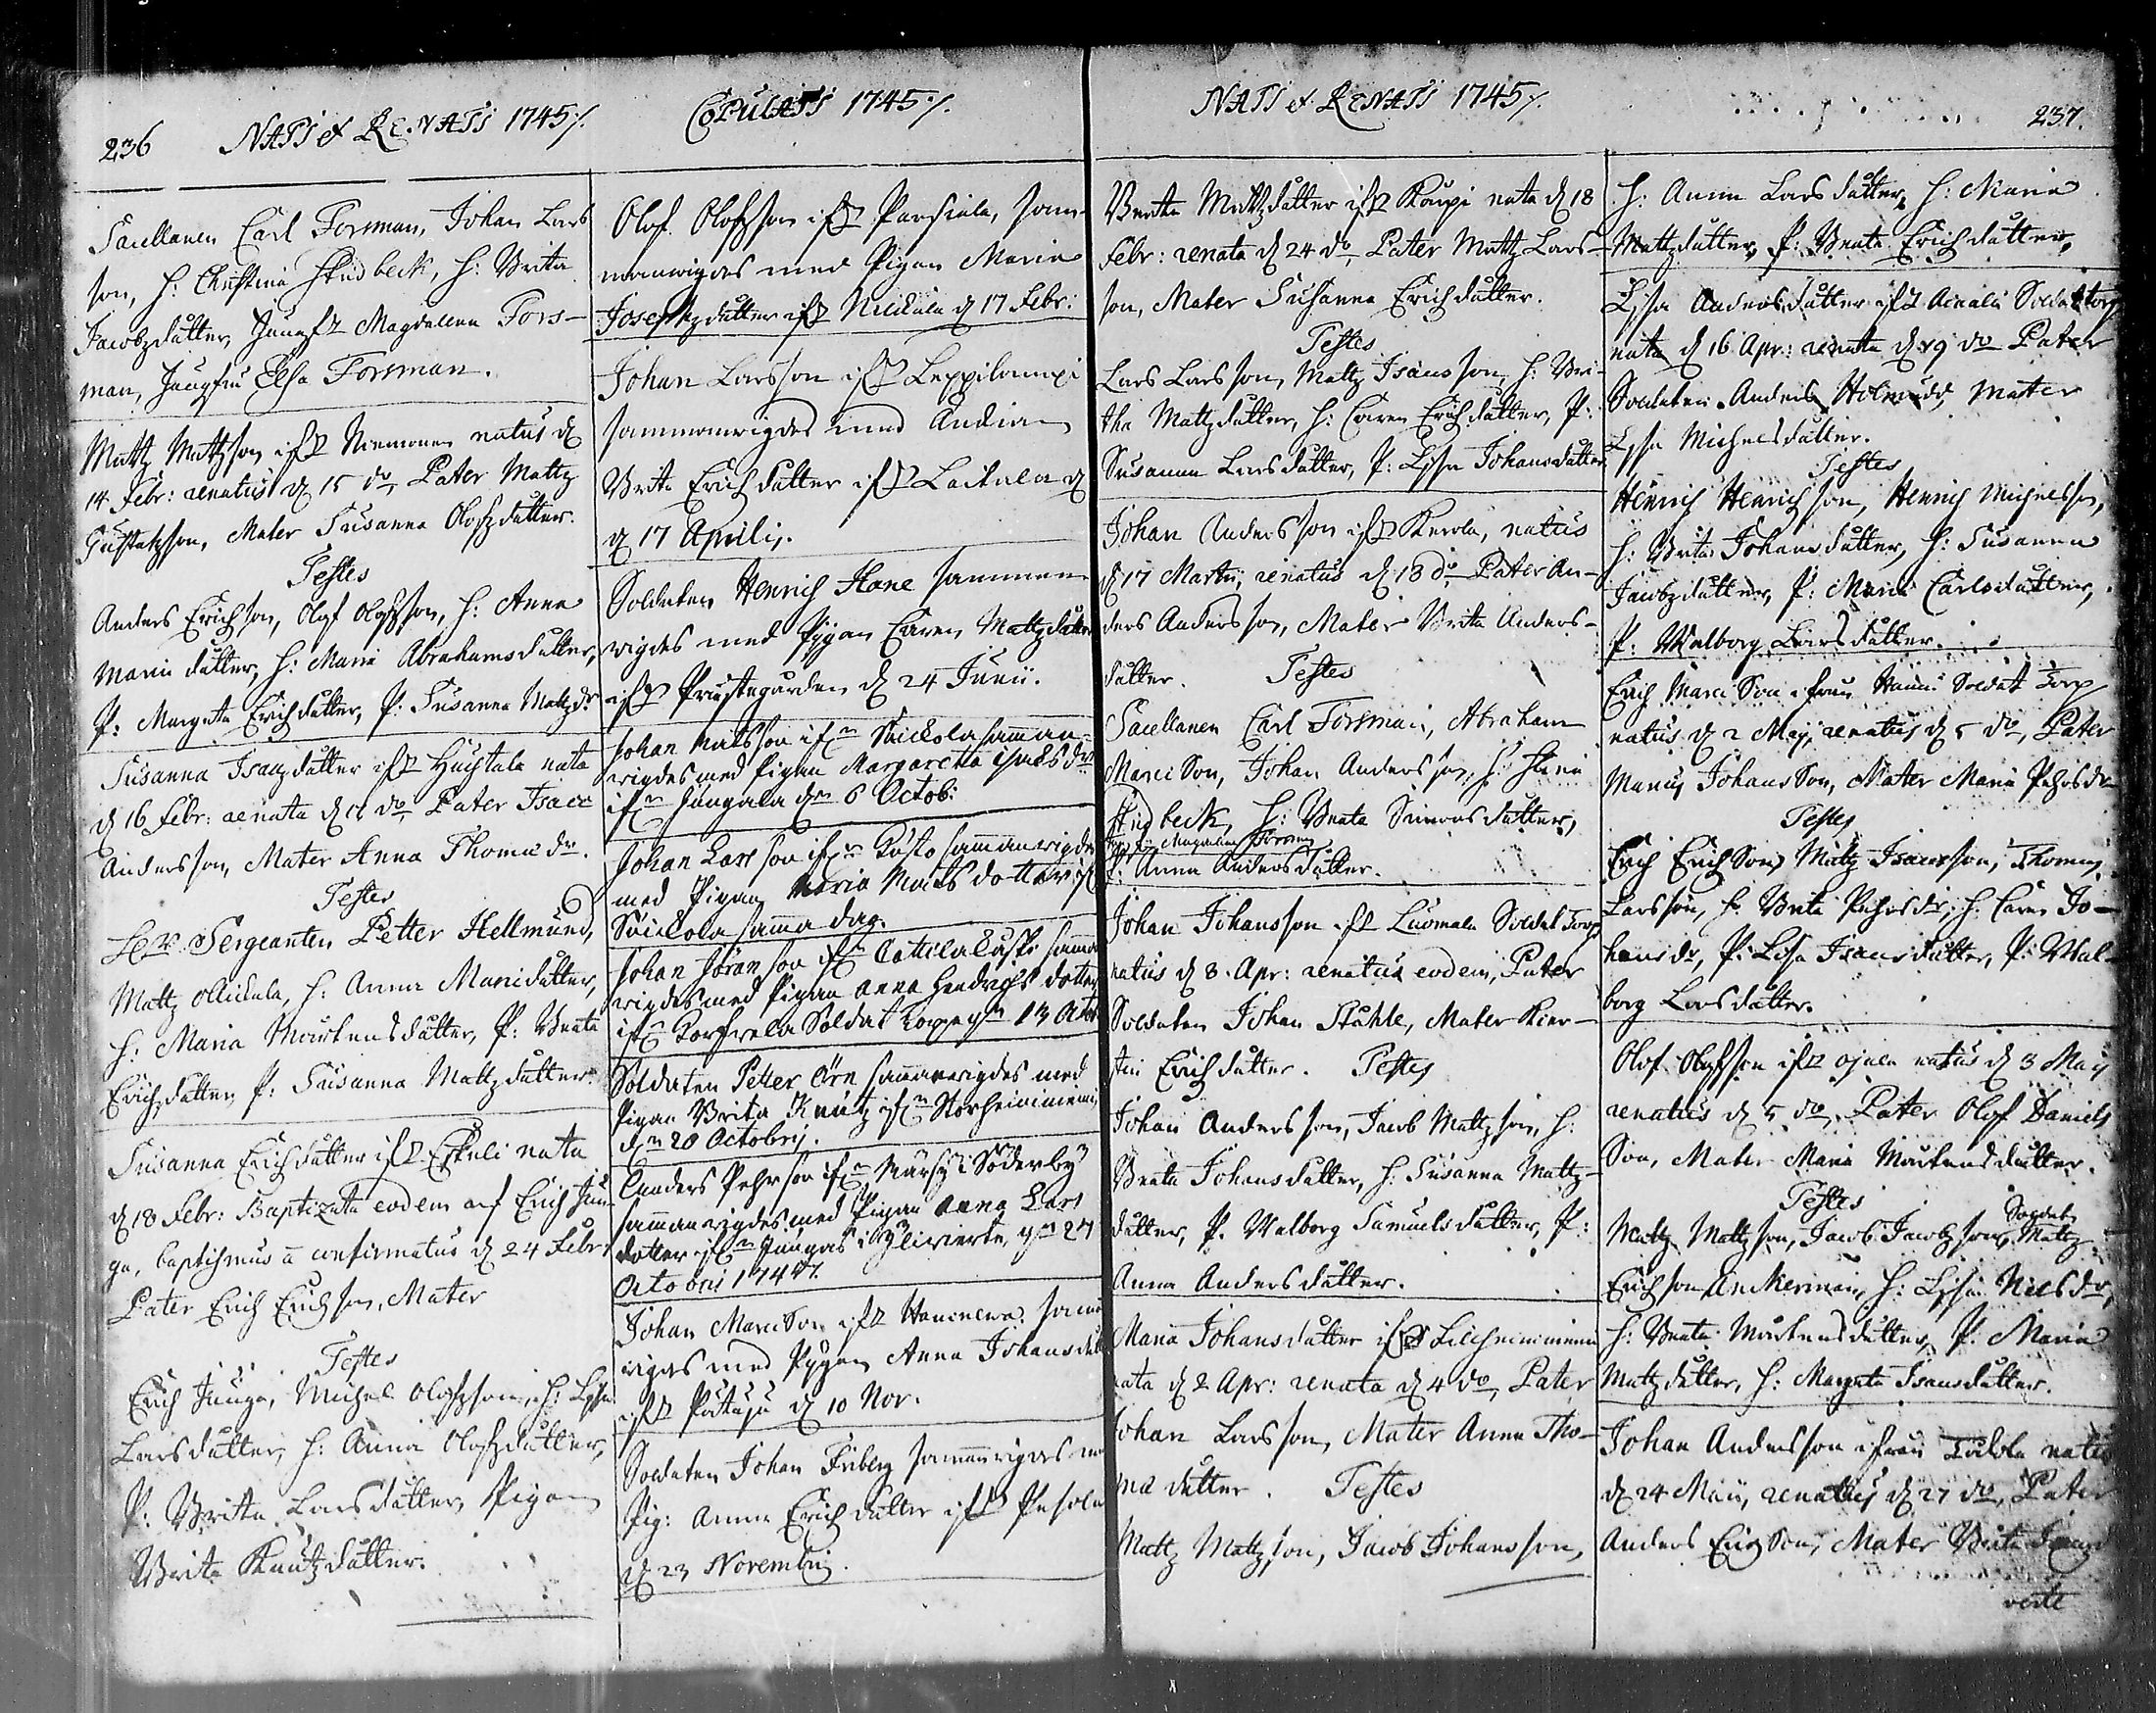 236 NATI et RENATI 1745 ⁒
Sacellanen Carl Forsman, Johan Lars
son, H: Christina Hindbeck, H: Brita
Jacobzdutter, Jungfr Magdalena Fors-
man, Jungfru Elsa Forsman.
Mattz Mattzson ifr Niemonen natus d
14 Febr: renatus d 15 do, Pater Mattz
Gustafzson, Mater Susanna Olofzdutter.
Testes
Anders Erichson, Olof Olofzson, H: Anna
Marci dutter, H: Maria Abrahamsdutter,
P: Margeta Erichdutter, P: Susanna Matzdr
Susanna Isaczdutter ifr Huhtala nata
d 16 Febr: renata d 17 do, Pater Isaac
Andersson, Mater Anna Thomæ dr.
Testes
Hr Sergeanten Petter Hellmund,
Mattz Mickula, H: Anna Marcidutter,
H: Maria Mårtensdutter, P: Beata
Erichdutter, P: Susanna Mattzdutter.
Susanna Erichdutter ifr Eskeli nata
d 18 Febr: Baptizata eodem af Erich Jun-
ga, baptismus a confirmatus d 24 Febr:
Pater Erich Erichson, Mater
Testes
Erich Junga, Michel Olofzson, H: Lisa
Larsdutter, H: Anna Olofzdutter,
P: Brita Larsdutter, Pigan
Brita Knutzdutter.
COPULATI 1745 ⁒
Olof Olofzson ifr Parsiala, sam-
manwigdes med Pigan Maria
Josephzdutter ifr Nickula d 17 Febr:
Johan Larsson ifr Leppilampi
sammanwigdes med Ändian
Brita Erichdutter ifr Laitala d
d 17 Aprilis.
Soldaten Henrich Hane samman-
wigdes med Pigan Caren Mattzdutter
ifr Prästegården d 24 Junii.
Johan Matsson ifrn Saickola samman-
wigdes med Pigan Margaretta isacsdr
ifrn Jungala dn 6 Octob:
Johan Larsson ifrn Kosto sammanwigdes
med Pigan Maria Mats dotter ifr
Saickola samma dag.
Johan Jöranson ifrn Cattilakoski samman
wigdes med Pigan Anna Hendrichs dotter
ifrn Korfwela Soldat torp dn 13 Octob
Soldaten Petter Örn sammanwigdes med
Pigan Brita Knutz ifrn Storheinimemi
dn 20 Octobris.
Anders Pehrson ifrn Mursu i Söderby
sammanwigdes med Pigan Anna Lars
dotter ifrn Jungas i Ylivierte, dn 27
Octobris 1745.
Johan Marcison ifr Hanenewa samman
wigdes med Pigan Anna Johansdutt
ifr Pätuju d 10 Nor.
Soldaten Johan Friberg sammanwigdes med
Pig: Anna Erichdutter ifr Pesola
d 23 Novembris.
NATI et RENATI 1745 ⁒
Beata Mattzdutter ifr Kaupi nata d 18
Febr: renata d 24 do, Pater Mattz Lars-
son, Mater Susanna Erichdutter.
Testes
Lars Larsson, Mattz Isacsson, H: Bri-
tha Mattzdutter, H: Caren Erichdutter, P:
Susanna Larsdutter, P: Lisa Johansdutter
Johan Andersson ifr Kerola, natus
d 17 Martii, renatus d 18 do Pater An-
ders Andersson, Mater Brita Anders-
dutter. Testes
Sacellanen Carl Forsman, Abraham
Marci Son, Johan Andersson, H: Stina
Hindbeck, H: Beata Simonsdutter,
Magdalena Forsman
P: Anna Andersdutter.
Johan Johansson ifr Luomala Soldat Torp
natus d 3 Apr: renatus eodem, Pater
Soldaten Johan Ståhle, Mater Kier-
stin Erichdutter. Testes
Johan Andersson, Jacob Mattzson, H:
Beata Johansdutter, H: Susanna Mattz-
dutter, P. Walborg Samuelsdutter, P:
Anna Andersdutter.
Maria Johansdutter ifr Lillheinimemi
nata d 2 Apr: renata d 4 do, Pater
Johan Larsson, Mater Anna Tho-
mæ dutter. Testes
Mattz Mattzson, Jacob Johansson,
237.
H: Anna Larsdutter, H: Maria
Mattzdutter, P: Beata Erichdutter,
Lisa Andersdutter ifr Ainali Soldat torp
nata d 16 Apr: renata d 19 do Pater
Soldaten Anders Holmudd, Mater
Lisa Michelsdutter.
Testes
Henrich Henrichson, Henrich Michelsson,
H: Brita Johansdutter, H: Susanna
Jacobzdutter, P: Maria Carlsdutter,
P: Walborg Larsdutter.
Erich Marci Son ifrån Soldat Torp
natus d 2 Maj, renatus d 5 do, Pater
Marcus Johansson, Mater Maria Pehrsdr
Testes
Erich Erichson, Mattz Isacsson, Thomas
Larsson, H: Brita Pehrsdr, H: Caren Jo-
hansdr, P: Lisa Isacsdutter, P: Wal-
borg Larsdutter.
Olof Olofsson ifr Ojala natus d 3 Maij
renatus d 5 do, Pater Olof Daniels
Son, Mater Maria Mårtensdutter.
Testes
Mattz Mattzson, Jacob Jacobzson, Soldat Mattz
Erichson Anckerman, H: Lisa Nilsdr,
H: Beata Mårtensdutter, P: Maria
Mattzdutter, H: Margeta Isacsdutter.
Johan Andersson ifrån natus
d 24 Maii, renatus d 27 do, Pater
Anders Erichson, Mater Brita
verte